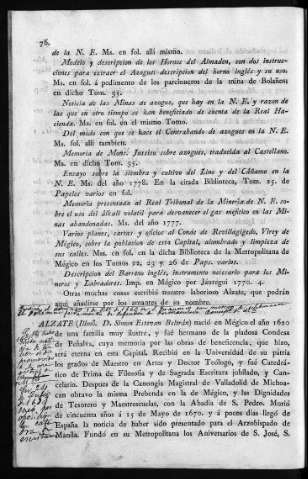 76.
de la N. E. Ms. en fol. allí mismo.
Modelo y descripcion de los Hornos del Almaden, con dos instruc-
ciones para extraer el Azogue: descripcion del horno inglés y su uso.
Ms. en fol. á pedimento de los parcioneros de la mina de Bolaños
en dicho Tom. 25.
Noticia de las Minas de azogue, que hay en la N. E. y razon de
las que en otro tiempo se han beneficiado de cuenta de la Real Ha-
cienda. Ms. en fol. en el mismo Tomo.
Del modo con que se hace el Contrabando de azogues en la N. E.
Ms. fol. allí tambien.
Memoria de Mons. Jussieu sobre azogues, traducida al Castellano.
Ms. en dicho Tom. 25.
Ensayo sobre la siembra y cultivo del Lino y del Cáñamo en la
N. E. Ms. del año 1778. En la citada Biblioteca, Tom. 25. de
Papeles varios en fol.
Memoria presentada al Real Tribunal de la Minería de N. E. so-
bre el uso del álkali volatil para desvanecer el gas mefítico en las Mi-
nas abandonadas. Ms. del año 1777.
Varios planes, cartas, y oficios al Conde de Revillagigedo, Virey de
Mégico, sobre la poblacion de esta Capital, alumbrado y limpieza de
sus calles. Mss. en fol. en la dicha Biblioteca de la Metropolitana de
Mégico en los Tomos 22, 23 y 26 de Paps. varios.
Descripcion del Barreno inglés, Instrumento necesario para los Mi-
neros y Labradores. Imp. en Mégico por Jáuregui 1770. 4.
Otras muchas cosas escribió nuestro laborioso Alzate, que podrán
aquí añadirse por los amantes de su nombre.
ALZATE (Illmô. D. Simon Estevan Beltrán) nació en Mégico el año 1620
de una familia muy ilustre, y fué hermano de la piadosa Condesa
de Peñalva, cuya memoria por las obras de beneficencia, que hizo,
será eterna en esta Capital. Recibió en la Universidad de su patria
los grados de Maestro en Artes y Doctor Teólogo, y fué Catedrá-
tico de Prima de Filosofía y de Sagrada Escritura jubilado, y Can-
celario. Despues de la Canongía Magistral de Valladolid de Michoa-
can obtuvo la misma Prebenda en la de Mégico, y las Dignidades
de Tesorero y Maestrescuelas, con la Abadía de S. Pedro. Murió
de cincuenta años á 15 de Mayo de 1670. y á pocos dias llegó de
España la noticia de haber sido presentado para el Arzobispado de
Manila. Fundó en su Metropolitana los Aniversarios de S. José, S.